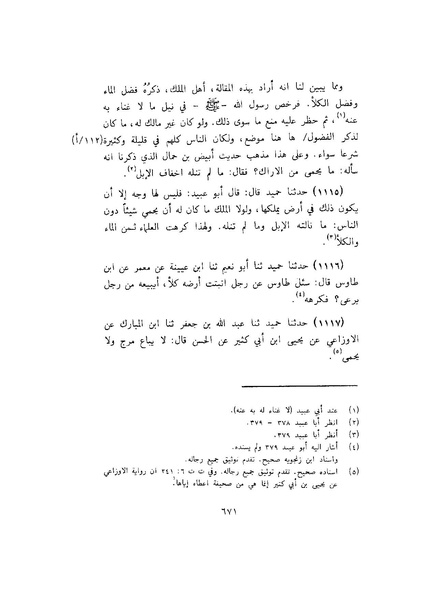 ومما يبين لنا انه أراد بهذه المقالة، أهل الملك، ذكرُهُ فضل الماء
وفضل الكلأ. فرخص رسول الله -ﷺ - في نيل ما لا غناء به
عنه(١)، ثم حظر عليه منع ما سوى ذلك. ولو كان غير مالك له، ما كان
لذكر الفضول/ ها هنا موضع، ولكان الناس كلهم في قليلة وكثيرة(١١٢/أ)
شرعا سواء. وعلى هذا مذهب حديث أبيض بن حمال الذي ذكرنا انه
سأله: ما يحمى من الاراك؟ فقال: ما لم تنله اخفاف الإبل(٢).
(١١١٥) حدثنا حميد قال: قال أبو عبيد: فليس لها وجه إلا أن
يكون ذلك في أرض يملكها، ولولا الملك ما كان له أن يحمي شيئاً دون
الناس: ما نالته الإبل وما لم تنله. ولهذا كرهت العلماء ثمن الماء
والكلأ(٣).
(١١١٦) حدثنا حميد ثنا أبو نعيم ثنا ابن عيينة عن معمر عن ابن
طاوس قال: سئل طاوس عن رجل انبتت أرضه كلأ، أيبيعه من رجل
يرعى؟ فكرهه(٤).
(١١١٧) حدثنا حميد ثنا عبد الله بن جعفر ثنا ابن المبارك عن
الاوزاعي عن يحيى ابن أبي كثير عن الحسن قال: لا يباع مرج ولا
يحمى(٥).
(١) عند أبي عبيد (لا غناء له به عنه).
(٢) انظر أبا عبيد ٣٧٨ - ٣٧٩.
(٣) أنظر أبا عبيد ٣٧٩.
(٤) أشار اليه أبو عبيد ٣٧٩ ولم يسنده.
واسناد ابن زنجويه صحيح. تقدم توثيق جميع رجاله.
(٥) اسناده صحيح. تقدم توثيق جميع رجاله. وفي ت ت ٦: ٢٤١ ان رواية الاوزاعي
عن يحيى بن أبي كثير إنما هي من صحيفة اعطاه إياها.
٦٧١